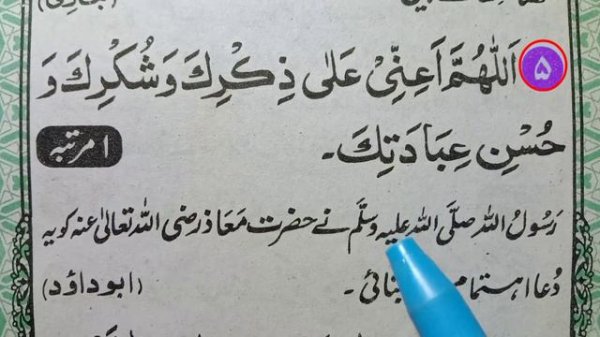 ۵ اَللّٰهُمَّ اَعِنِّيْ عَلٰى ذِكْرِكَ وَشُكْرِكَ وَ
حُسْنِ عِبَادَتِكَ۔ ۱ مرتبہ
رَسُولُ اللہ صلَّی اللہ علیہ وسلَّم نے حضرت مَعَاذ رضی اللہ تعالیٰ عنہ کو یہ
دُعا اہتمام بتائی ۔ (ابوداؤد)